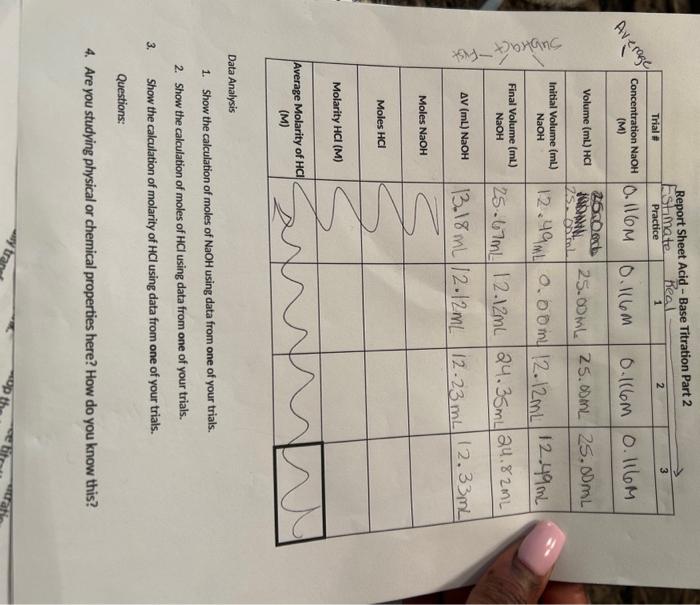 Report Sheet Acid - Base Titration Part 2
Estimate Real
Trial # Practice 1 2 3
Average
Concentration NaOH (M) 0.116M 0.116M 0.116M 0.116M
Volume (mL) HCl 25.00mL 25.00mL 25.00mL
25.00mL
Initial Volume (mL) NaOH 12.49mL 0.00mL 12.12mL 12.49mL
Subtract
Final Volume (mL) NaOH 25.67mL 12.12mL 24.35mL 24.82mL
First
ΔV (mL) NaOH 13.18mL 12.12mL 12.23mL 12.33mL
Moles NaOH
Moles HCl
Molarity HCl (M)
Average Molarity of HCl (M)
Data Analysis
1. Show the calculation of moles of NaOH using data from one of your trials.
2. Show the calculation of moles of HCl using data from one of your trials.
3. Show the calculation of molarity of HCl using data from one of your trials.
Questions:
4. Are you studying physical or chemical properties here? How do you know this?